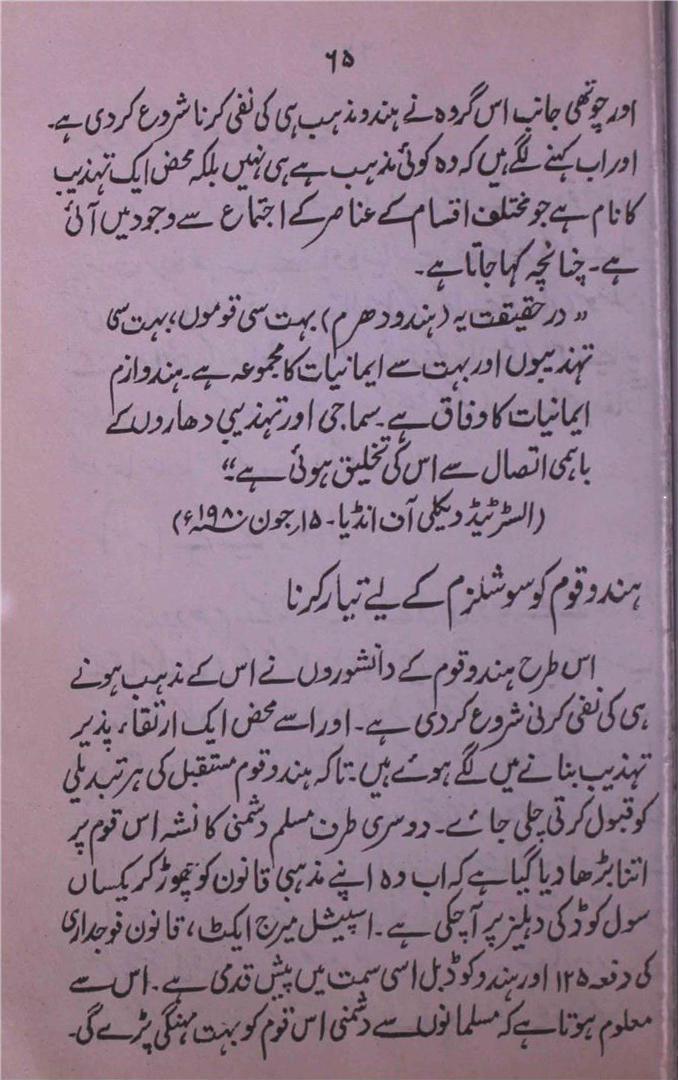 ۶۵
اور چوتھی جانب اس گروہ نے ہندو مذہب ہی کی نفی کرنا شروع کر دی ہے۔
اور اب کہنے لگے ہیں کہ وہ کوئی مذہب ہے ہی نہیں بلکہ محض ایک تہذیب
کا نام ہے جو مختلف اقسام کے عناصر کے اجتماع سے وجود میں آئی
ہے۔ چنانچہ کہا جاتا ہے۔
”در حقیقت یہ (ہندو دھرم) بہت سی قوموں، بہت سی
تہذیبوں اور بہت سے ایمانیات کا مجموعہ ہے۔ ہندوازم
ایمانیات کا وفاق ہے۔ سماجی اور تہذیبی دھاروں کے
باہمی اتصال سے اس کی تخلیق ہوئی ہے۔“
(السٹرٹیڈ ویکلی آف انڈیا۔ ۱۵ر جون ۱۹۸۰ء)
ہندو قوم کو سوشلزم کے لیے تیار کرنا
اس طرح ہندو قوم کے دانشوروں نے اس کے مذہب ہونے
ہی کی نفی کرنی شروع کر دی ہے۔ اور اسے محض ایک ارتقاء پذیر
تہذیب بنانے میں لگے ہوئے ہیں۔ تاکہ ہندو قوم مستقبل کی ہر تبدیلی
کو قبول کرتی چلی جائے۔ دوسری طرف مسلم دشمنی کا نشہ اس قوم پر
اتنا بڑھا دیا گیا ہے کہ اب وہ اپنے مذہبی قانون کو چھوڑ کر یکساں
سول کوڈ کی دہلیز پر آچکی ہے۔ اسپیشل میرج ایکٹ، قانون فوجداری
کی دفعہ ۱۲۵ اور ہندو کوڈ بل اسی سمت میں پیش قدمی ہے۔ اس سے
معلوم ہوتا ہے کہ مسلمانوں سے دشمنی اس قوم کو بہت مہنگی پڑے گی۔